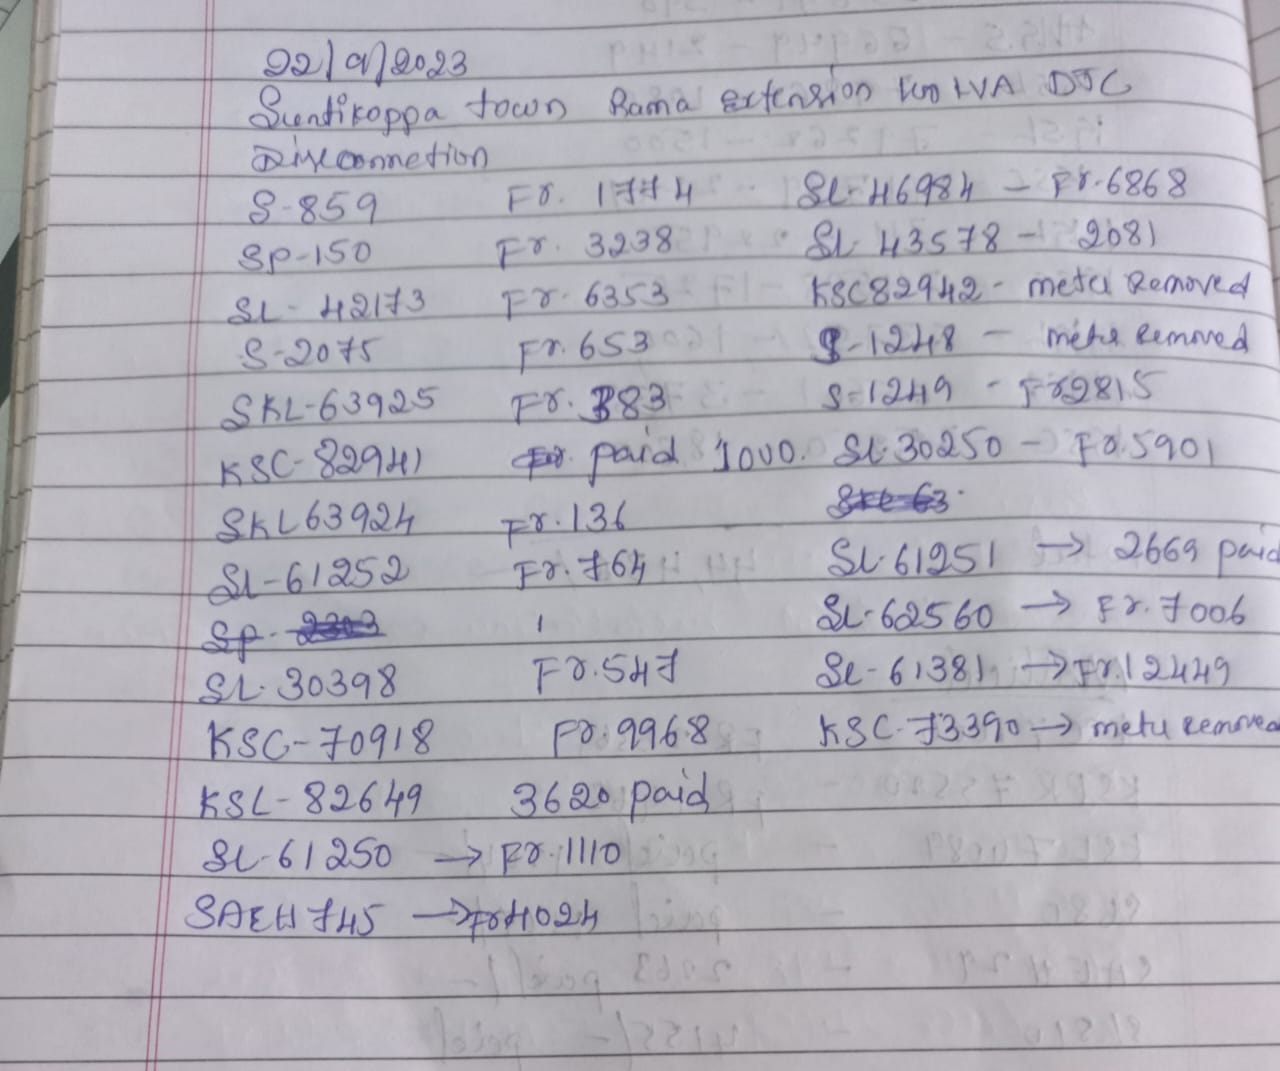 22/9/2023
Suntikoppa town Rama extension 100 KVA DTC
Disconnetion
S-859 Fr. 1774 SL-46984 - Fr.6868
SP-150 Fr. 3238 SL 43578 - 2081
SL-42173 Fr. 6353 KSC82942 - meter Removed
S-2075 Fr. 653 S-1248 - meter Removed
SKL-63925 Fr. 383 S-1249 - Fr2815
KSC-82941 paid 1000. SL 30250 - Fr.5901
SKL63924 Fr.136 SKL-63
SL-61252 Fr. 764 SL-61251 → 2669 paid
SP- 2303 SL-62560 → Fr.7006
SL-30398 Fr.547 SL-61381 → Fr.12449
KSC-70918 Fr.9968 KSC-73390 → meter Removed
KSL-82649 3620 paid
SL-61250 → Fr.1110
SAEH745 → Fr4024